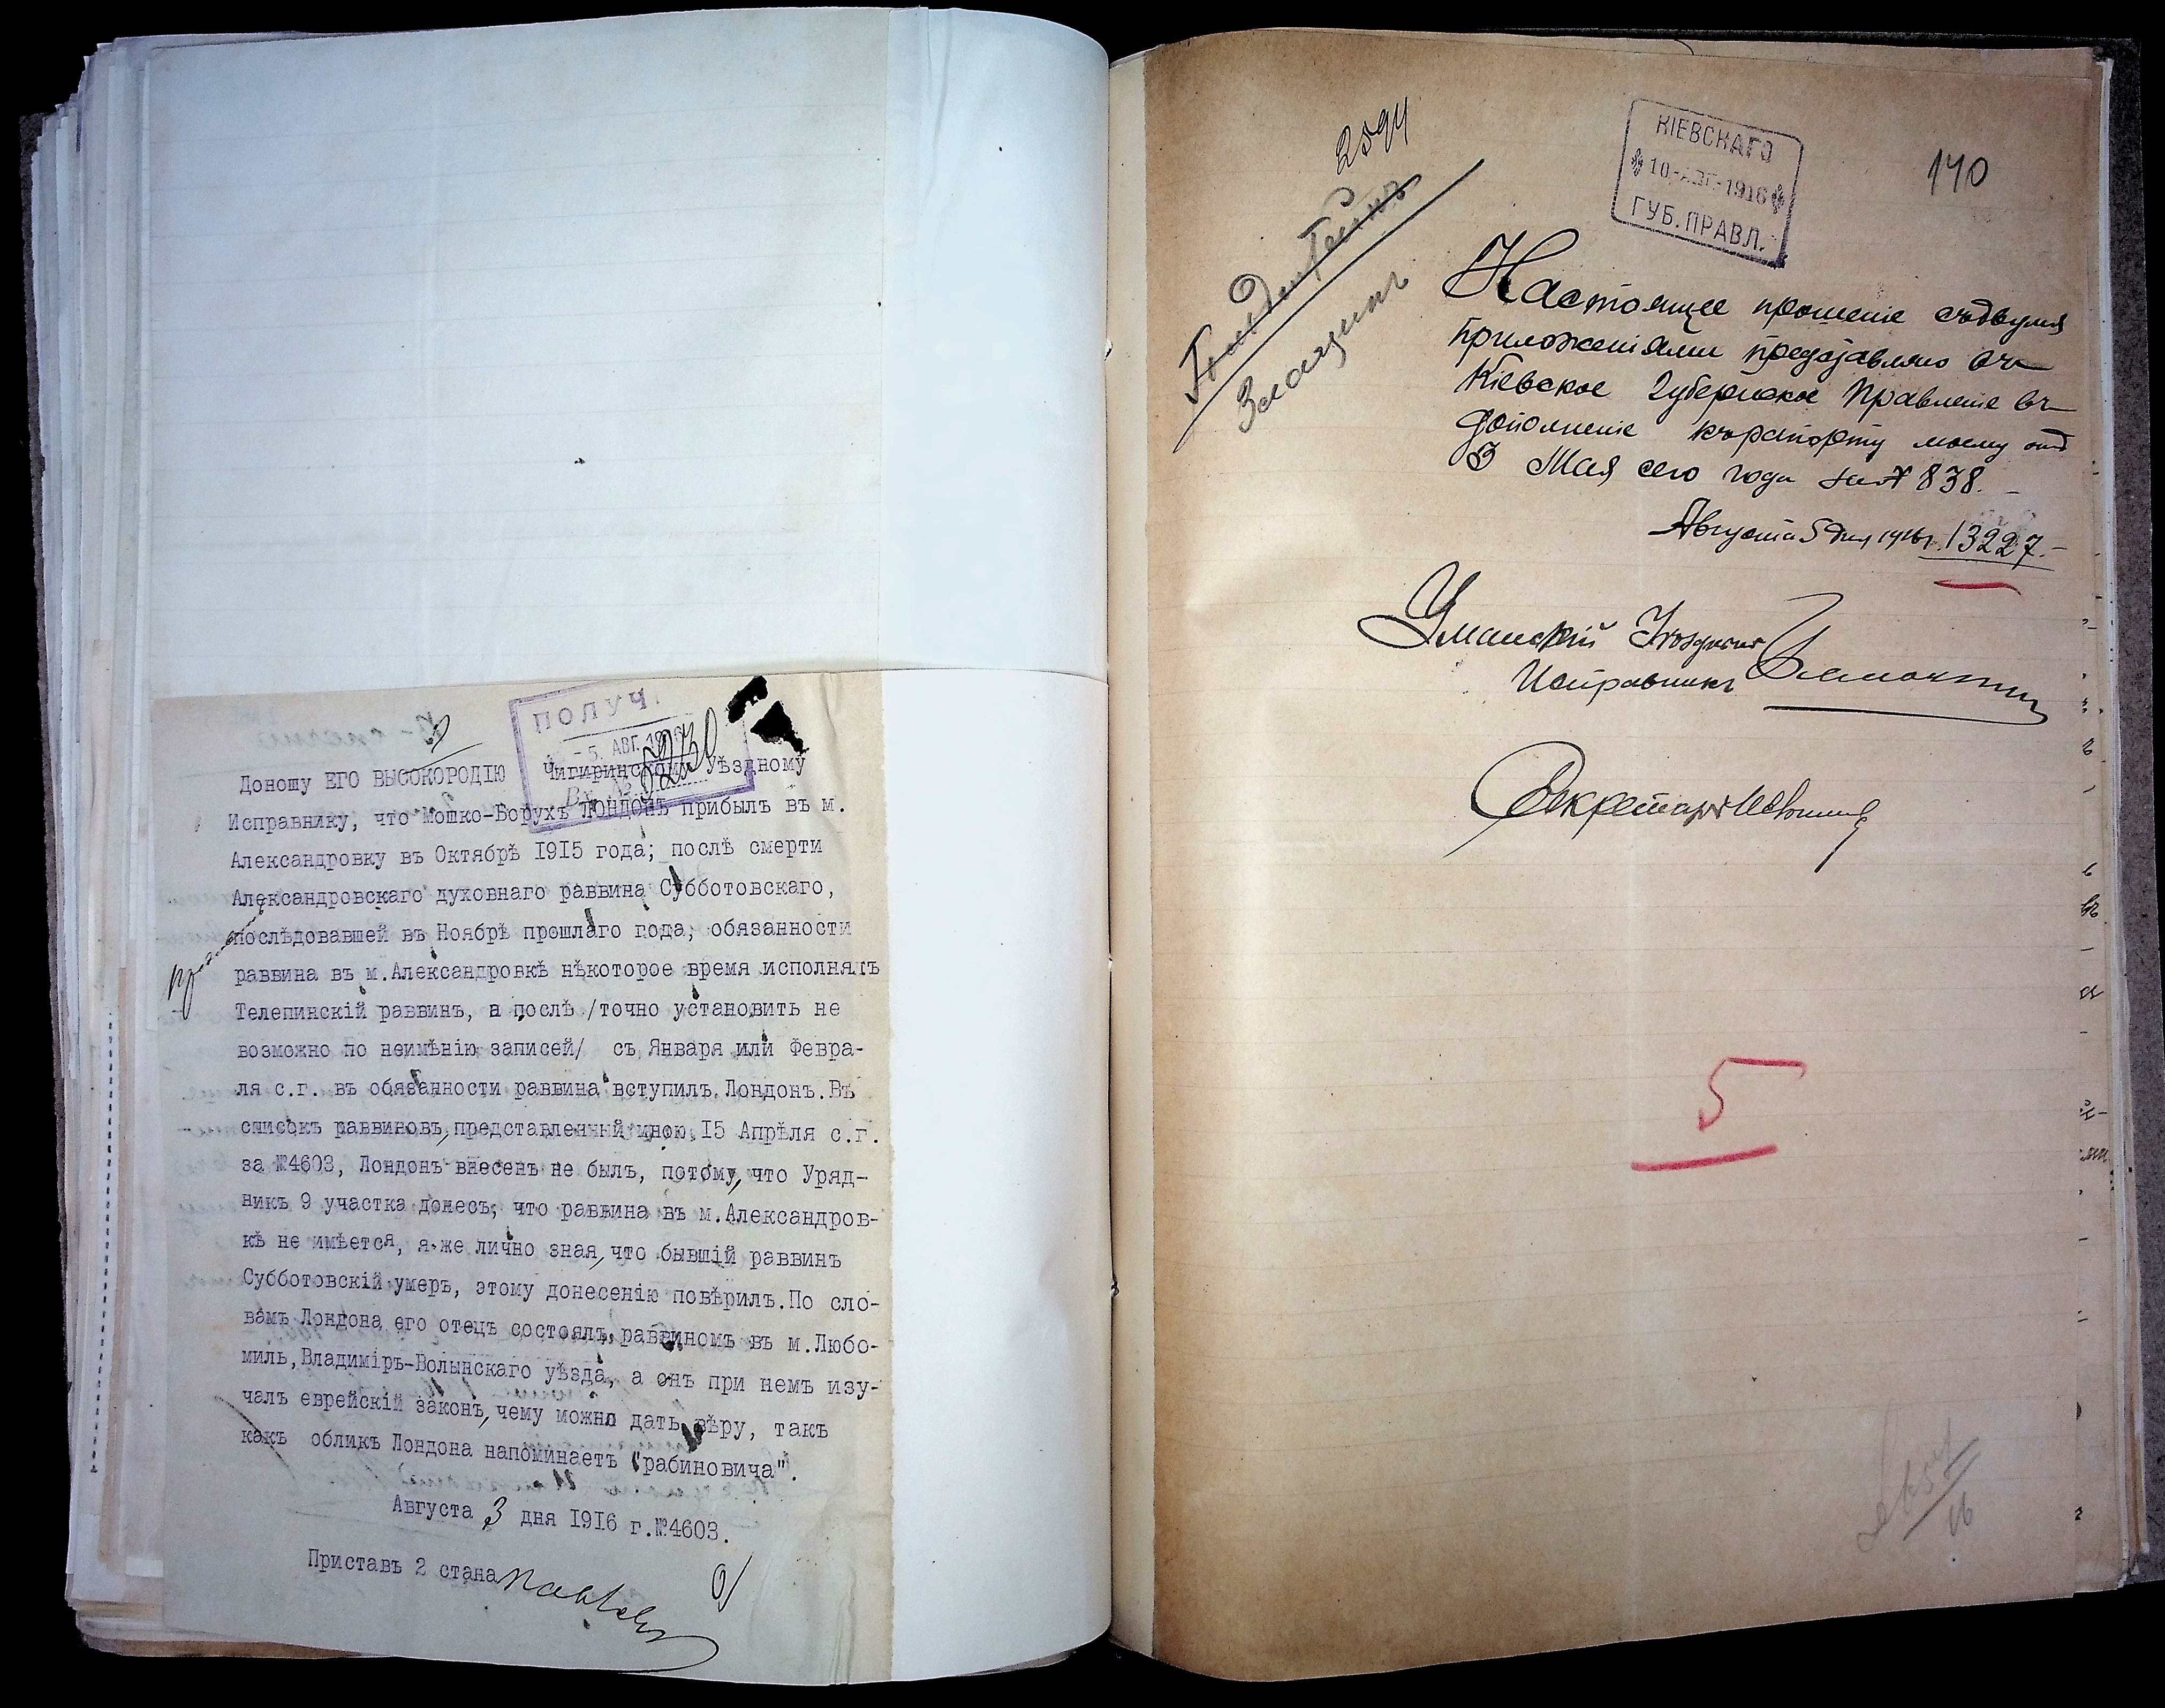 ПОЛУЧ
5. АВГ. 1916
5230
Доношу ЕГО ВЫСОКОРОДІЮ Чигиринскому Уѣздному
Исправнику, что Мошко-Борухъ ЛОНДОНЪ прибылъ въ м.
Александровку въ Октябрѣ 1915 года; послѣ смерти
Александровскаго духовнаго раввина Субботовскаго,
послѣдовавшей въ Ноябрѣ прошлаго года, обязанности
раввина въ м.Александровкѣ нѣкоторое время исполнялъ
Телепинскій раввинъ, а послѣ /точно установить не
возможно по неимѣнію записей/ съ Января или Февра-
ля с.г. въ обязанности раввина вступилъ Лондонъ. Въ
списокъ раввиновъ, представленный мною 15 Апрѣля с.г.
за №4603, Лондонъ внесенъ не былъ, потому, что Уряд-
никъ 9 участка донесъ, что раввина въ м.Александров-
кѣ не имѣется, я же лично зная, что бывшій раввинъ
Субботовскій умеръ, этому донесенію повѣрилъ. По сло-
вамъ Лондона его отецъ состоялъ раввиномъ въ м.Любо-
миль, Владиміръ-Волынскаго уѣзда, а онъ при немъ изу-
чалъ еврейскій законъ, чему можно дать вѣру, такъ
какъ обликъ Лондона напоминаетъ "рабиновича".
Августа 3 дня 1916 г. №4603.
Приставъ 2 стана
2594
КІЕВСКАГО
10-АВГ-1916
ГУБ. ПРАВЛ.
140
Настоящее прошеніе съ двумя
приложеніями представляю въ
Кіевское Губернское Правленіе въ
дополненіе къ рапорту моему отъ
3 Мая сего года за № 838.
Августа 5 дня 1916 г. 13227.
Уманскій Уѣздный
Исправникъ
Секретарь
5